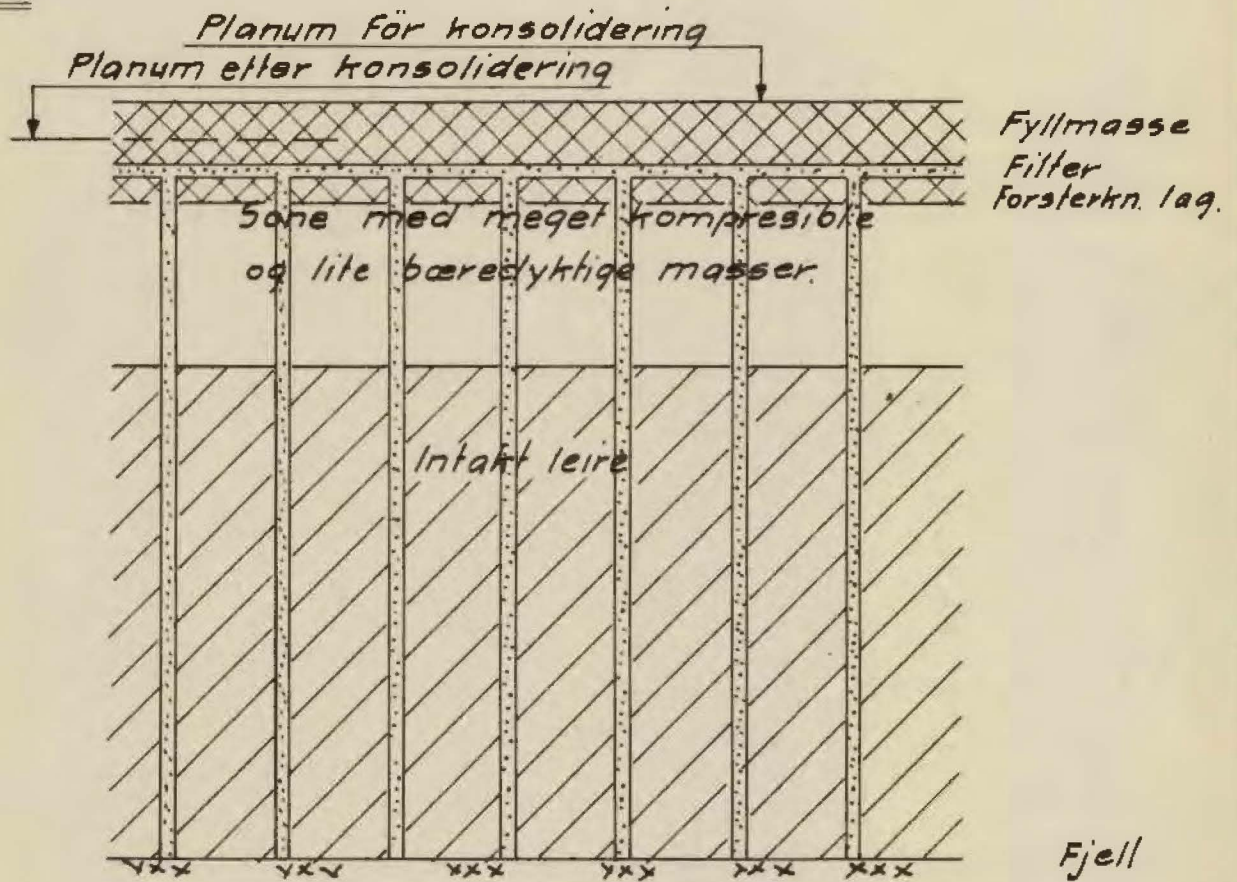 Planum för konsolidering
Planum etter konsolidering
Fyllmasse
Filter
Forsterkn. lag.
Sone med meget kompresible
og lite bæredyktige masser.
Intakt leire
Fjell